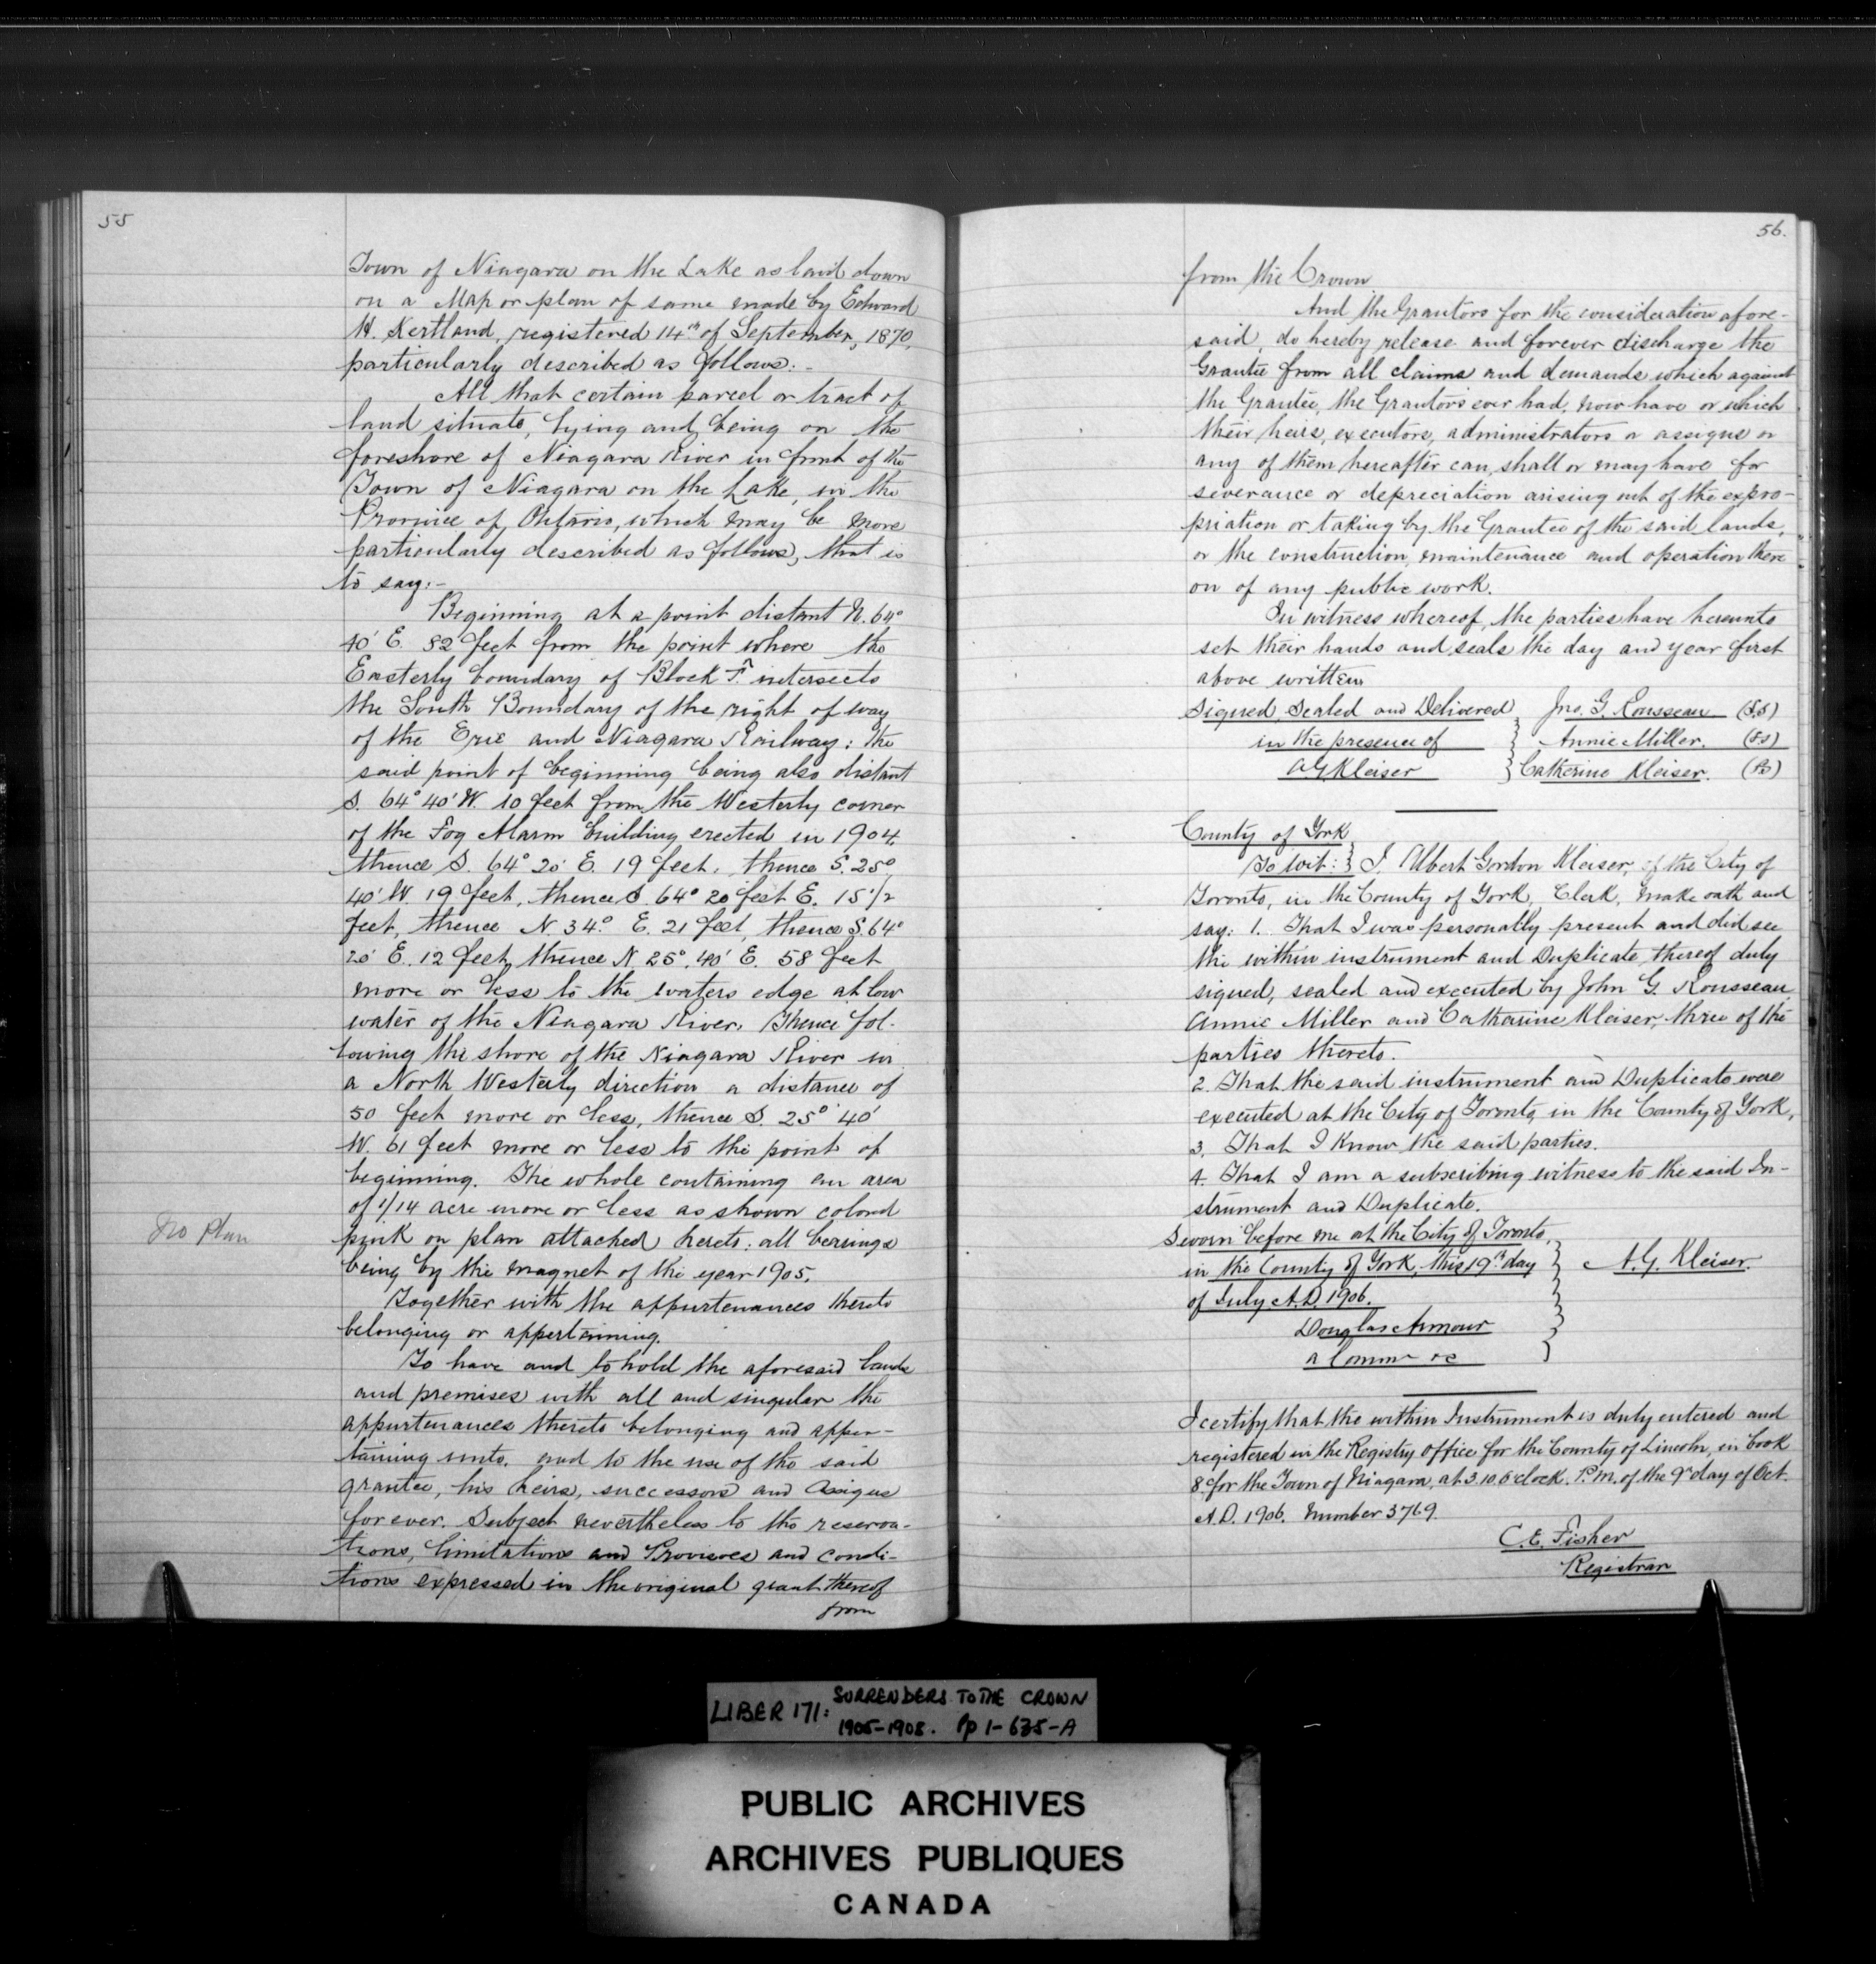 55
Town of Niagara on the Lake as laid down
on a Map or plan of same made by Edward
H. Kertland, registered 14th of September, 1870,
particularly described as follows:-
All that certain parcel or tract of
land situate, lying and being on the
foreshore of Niagara River in front of the
Town of Niagara on the Lake, in the
Province of Ontario, which may be more
particularly described as follows, that is
to say:-
Beginning at a point distant N. 64°
40' E. 82 feet from the point where the
Easterly boundary of Block F. intersects
the South Boundary of the right of way
of the Erie and Niagara Railway; the
said point of beginning being also distant
S. 64° 40' W. 10 feet from the Westerly corner
of the Fog Alarm building erected in 1904,
thence S. 64° 20' E. 19 feet, thence S. 25°
40' W. 19 feet, thence S. 64° 20 feet E. 15 1/2
feet, thence N 34° E. 21 feet, thence S. 64°
20' E. 12 feet, thence N 25°. 40' E. 58 feet
more or less to the waters edge at low
water of the Niagara River. Thence fol-
lowing the shore of the Niagara River in
a North Westerly direction a distance of
50 feet more or less, thence S. 25° 40'
W. 61 feet more or less to the point of
beginning. The whole containing an area
of 1/14 acre more or less as shown colored
No Plan
pink on plan attached hereto; all bearings
being by the magnet of the year 1905.
Together with the appurtenances thereto
belonging or appertaining.
To have and to hold the aforesaid lands
and premises with all and singular the
appurtenances thereto belonging and apper-
taining unto, and to the use of the said
grantee, his heirs, successors and Assigns
for ever. Subject nevertheless to the reserva-
tions, limitations and Provisoes and condi-
tions expressed in the original grant thereof
from
56.
from the Crown
And the Grantors for the consideration afore-
said, do hereby release and forever discharge the
Grantee from all claims and demands which against
the Grantee, the Grantors ever had, now have or which
their heirs, executors, administrators or assigns or
any of them hereafter can, shall or may have for
severance or depreciation arising out of the expro-
priation or taking by the Grantee of the said lands,
or the construction, maintenance and operation there
on of any public work.
In witness whereof, the parties have hereunto
set their hands and seals the day and year first
above written
Signed, Sealed and Delivered } Jno. G. Rousseau (SS)
in the presence of } Annie Miller. (SS)
A G Kleiser } Catherine Kleiser.
County of York
To Wit: } I, Albert Gordon Kleiser, of the City of
Toronto, in the County of York, Clerk, make oath and
say: 1. That I was personally present and did see
the within instrument and Duplicate thereof duly
signed, sealed and executed by John G. Rousseau,
Annie Miller and Catharine Kleiser, three of the
parties thereto.
2. That the said instrument and Duplicate were
executed at the City of Toronto, in the County of York,
3. That I know the said parties.
4. That I am a subscribing witness to the said In-
strument and Duplicate.
Sworn before me at the City of Toronto,
in the County of York, this 19th day } A. G. Kleiser.
of July A.D. 1906.
Douglas Armour
a Commr &c
I certify that the within Instrument is duly entered and
registered in the Registry Office for the County of Lincoln, in book
8 for the Town of Niagara, at 3.10 o'clock. P.M. of the 9th day of Oct.
A.D. 1906. Number 3769.
C. E. Fisher
Registrar
LIBER 171: SURRENDERS TO THE CROWN
1905-1908. Pp 1-635-A
PUBLIC ARCHIVES
ARCHIVES PUBLIQUES
CANADA